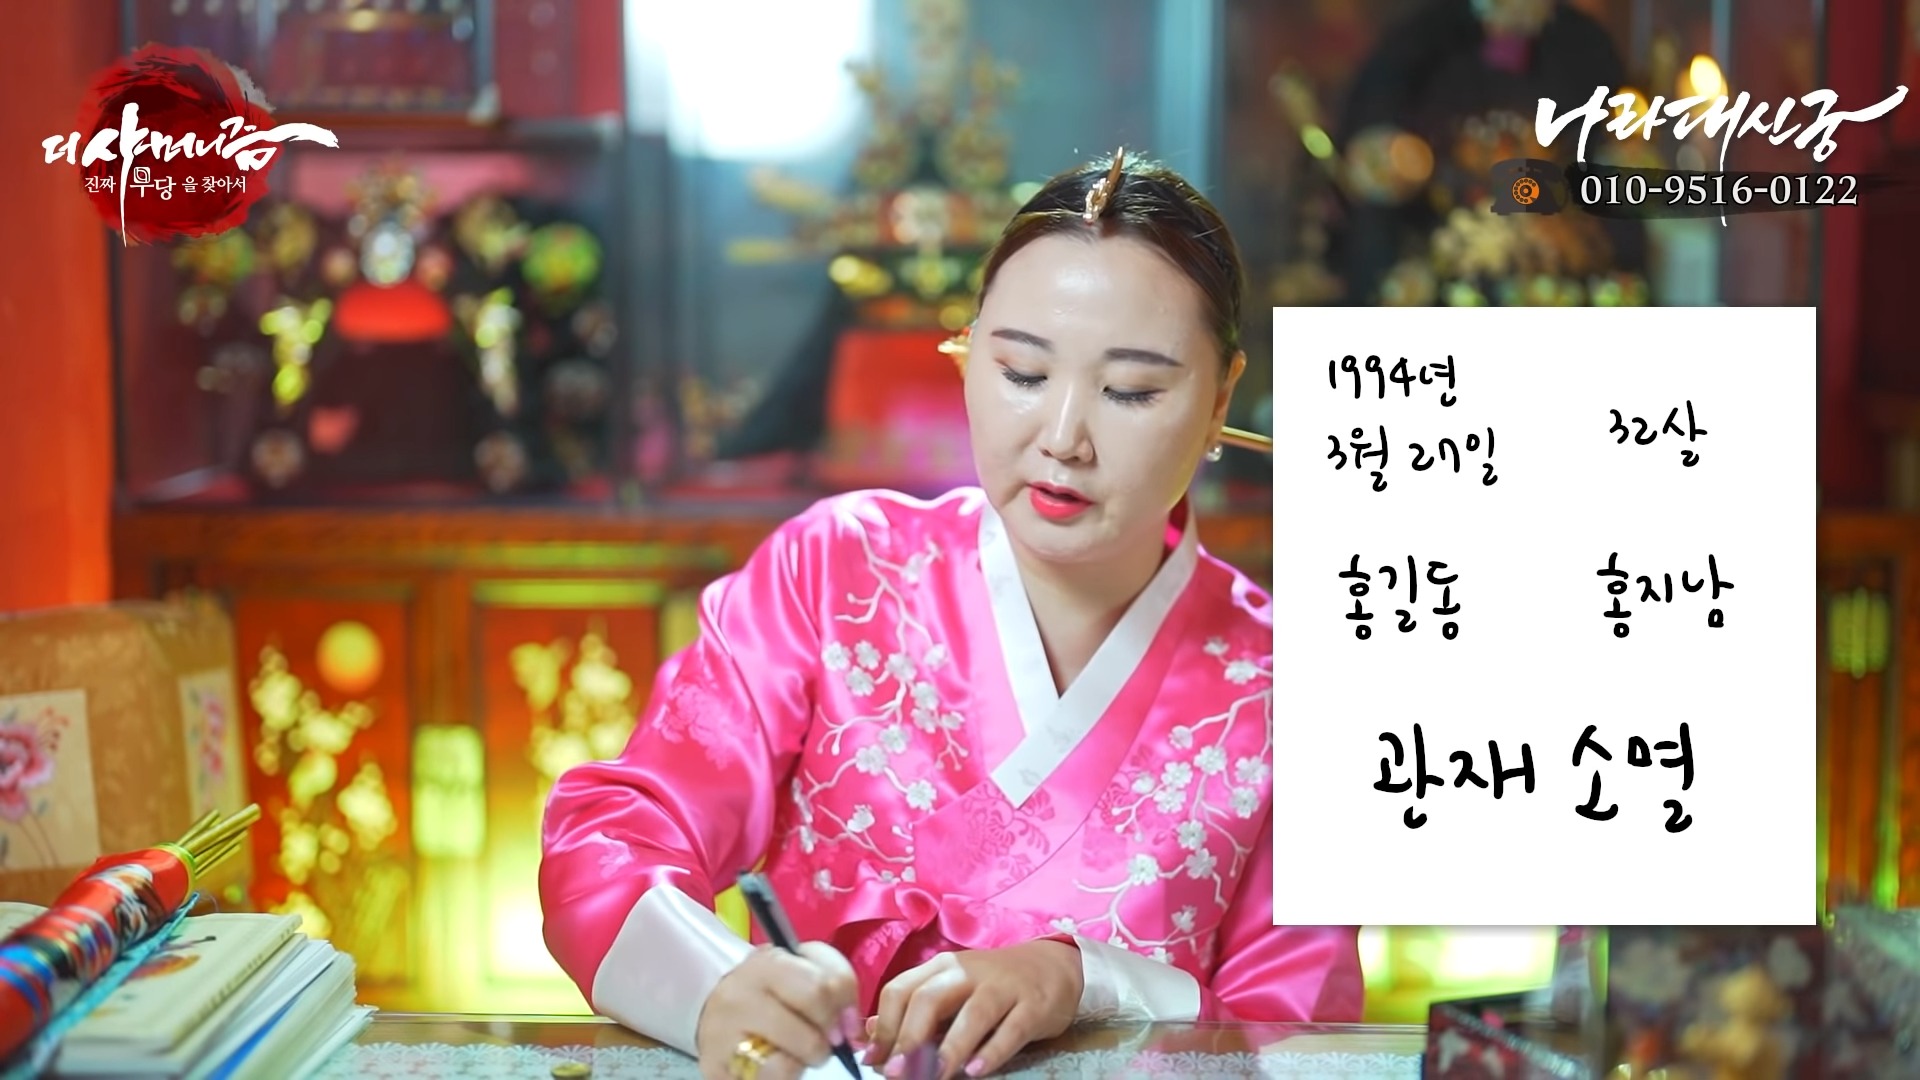 더 샤머니즘
진짜 무당을 찾아서
나라대신궁
010-9516-0122
1994년
3월 27일
32살
홍길동
홍지남
관재 소멸